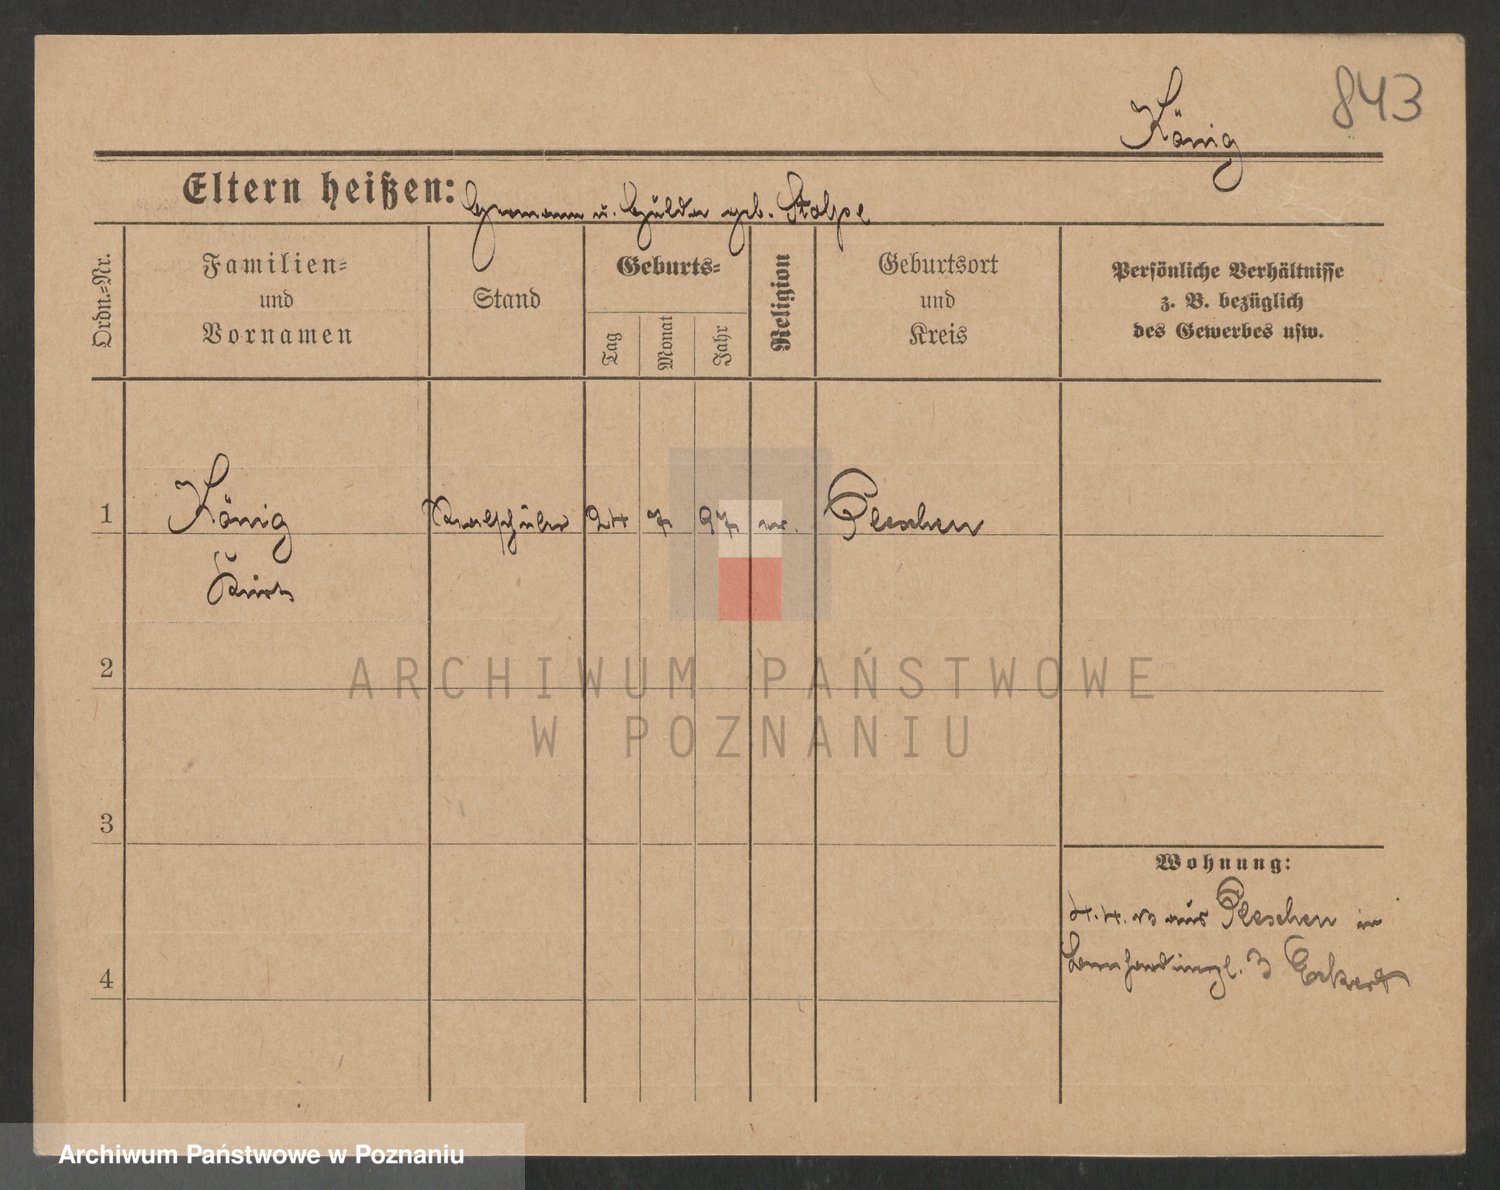 843
König
Eltern heißen: Hermann u. Hulda geb. Stolpe
Ordn.=Nr.
Familien=
und
Vornamen
Stand
Geburts=
Tag
Monat
Jahr
Religion
Geburtsort
und
Kreis
Persönliche Verhältnisse
z. B. bezüglich
des Gewerbes usw.
1
König
Realschüler
24
7
97
ev.
Pleschen
Kurt
ARCHIWUM PAŃSTWOWE
W POZNANIU
2
3
4
Wohnung:
4.4. aus Pleschen in
3 Eckert
Archiwum Państwowe w Poznaniu